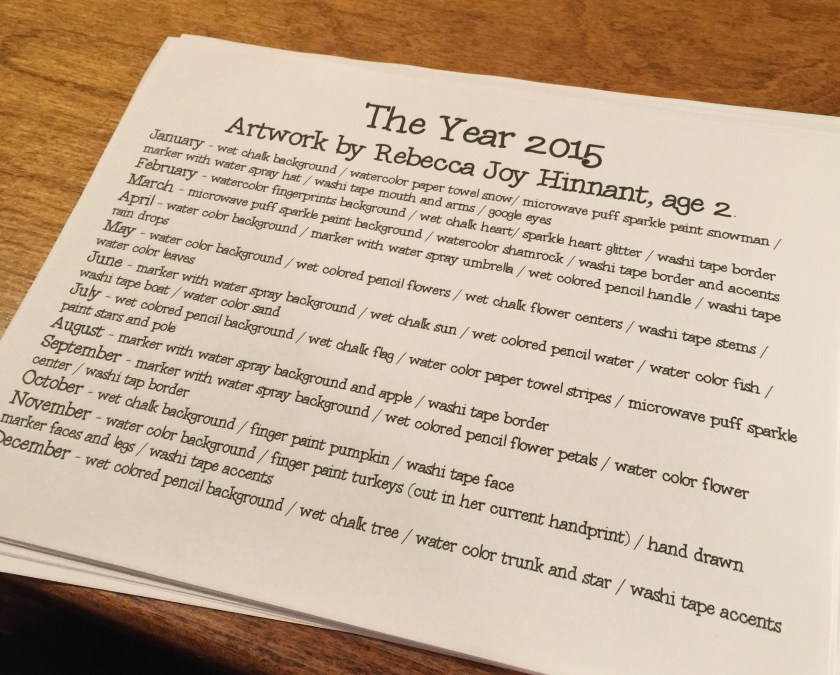 The Year 2015
Artwork by Rebecca Joy Hinnant, age 2.
January - wet chalk background / watercolor paper towel snow/ microwave puff sparkle paint snowman /
marker with water spray hat / washi tape mouth and arms / google eyes
February - watercolor fingerprints background / wet chalk heart/ sparkle heart glitter / washi tape border
March - microwave puff sparkle paint background / watercolor shamrock / washi tape border and accents
April - water color background / marker with water spray umbrella / wet colored pencil handle / washi tape
rain drops
May - water color background / wet colored pencil flowers / wet chalk flower centers / washi tape stems /
water color leaves
June - marker with water spray background / wet chalk sun / wet colored pencil water / water color fish /
washi tape boat / water color sand
July - wet colored pencil background / wet chalk flag / water color paper towel stripes / microwave puff sparkle
paint stars and pole
August - marker with water spray background and apple / washi tape border
September - marker with water spray background / wet colored pencil flower petals / water color flower
center / washi tap border
October - wet chalk background / finger paint pumpkin / washi tape face
November - water color background / finger paint turkeys (cut in her current handprint) / hand drawn
marker faces and legs / washi tape accents
December - wet colored pencil background / wet chalk tree / water color trunk and star / washi tape accents